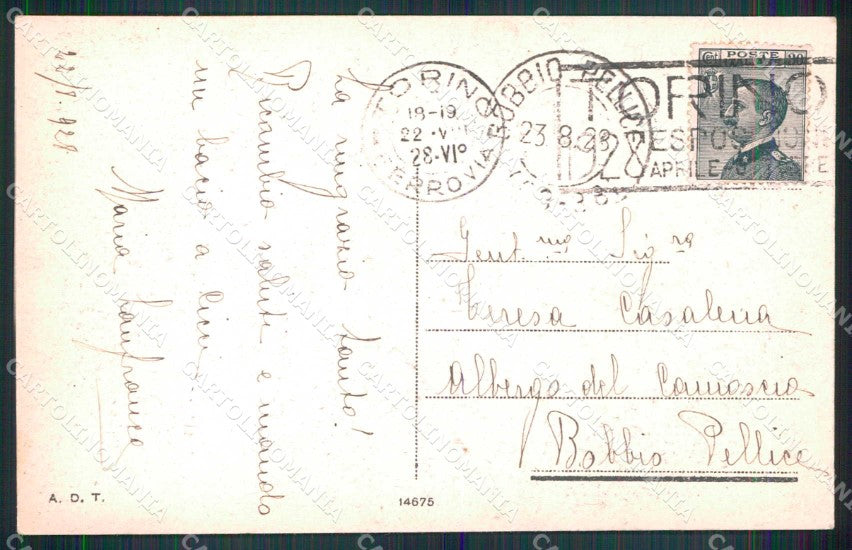 22/8.928
La ringrazio tanto!
Ricambio saluti e mando
un bacio a Cicci
Maria Lanfranco
A. D. T.
14675
TORINO
18-19
22 · VIII
28·VIº
FERROVIA
BOBBIO PELLICE
23.8.28
TORINO
TORINO
ESPOSIZIONE
1928
APRILE OTTOBRE
POSTE
Gent.ma Sig.ra
Teresa Casalena
Albergo del Camoscio
Bobbio Pellice
CARTOLINOMANIA